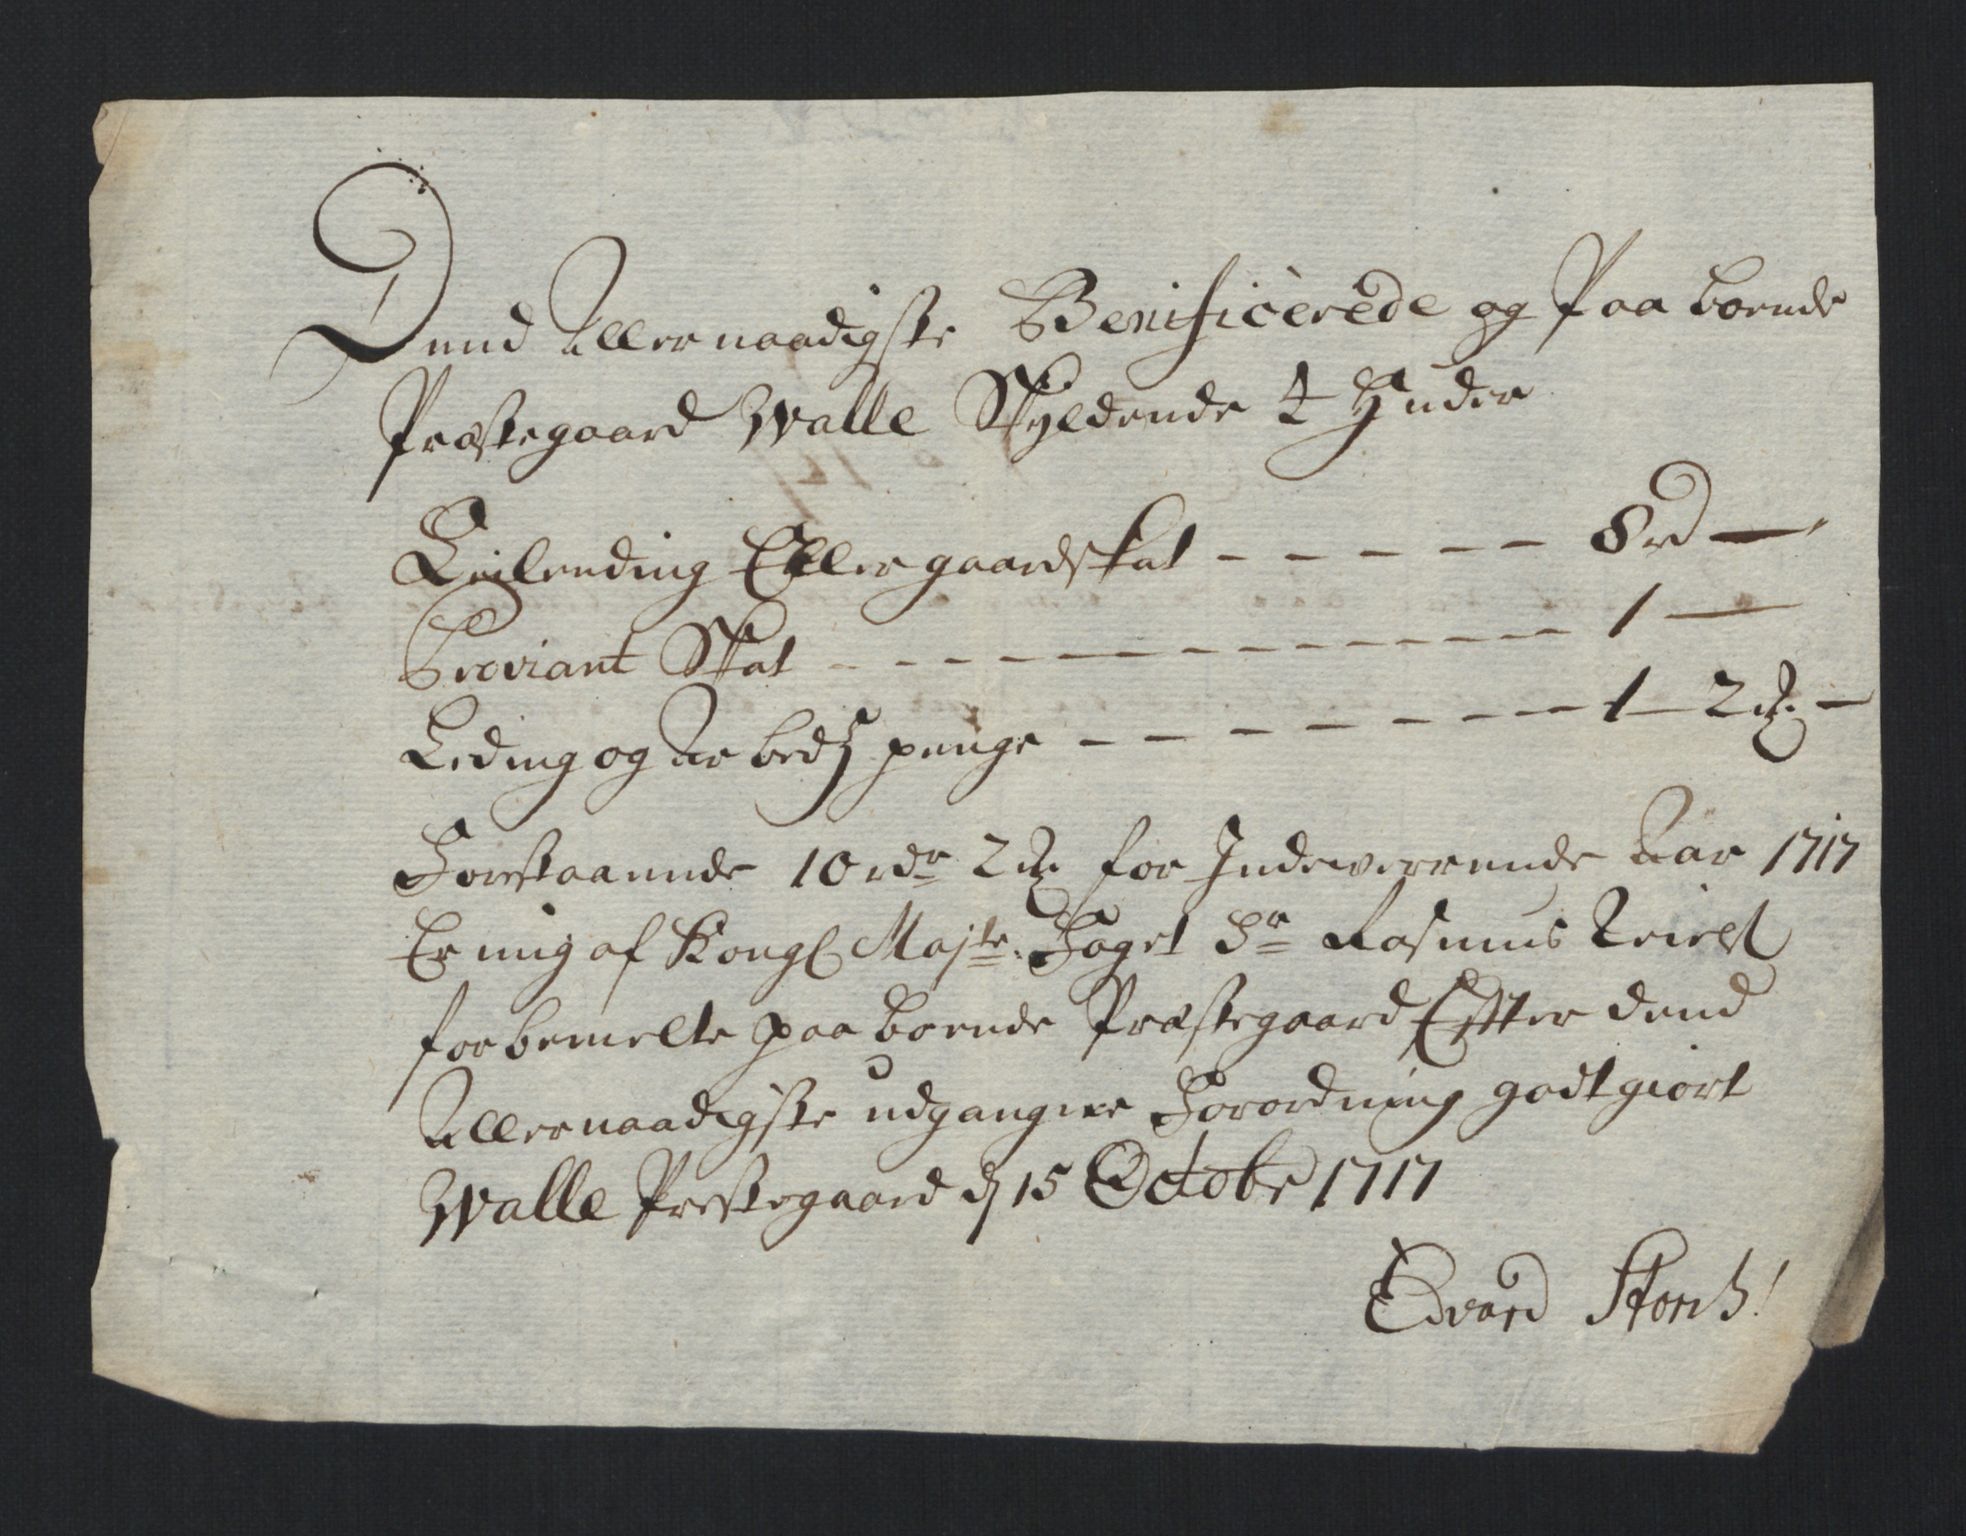 Dend Allernaadigste Benificerede og Paa boende
Præstegaard Walle Skyldende 4 Huder
Leilending Eller gaardskat - - - - - - 8 rd —
Proviant Skat - - - - - - - - - - - - 1 —
Leding og Arbedz penge - - - - - - - - 1 - 2 ℔ -
Forestaaende 10 rdr 2 ℔ for Indewerrende Aar 1717
Er mig af Kongl Majte: Foget Sr Rasmus
for bemelte paa boende Præstegaard Efter dend
Allernaadigste udgangne Forordning godtgiort
Walle Prestegaard d 15 Octobr 1717
Edvard Storch